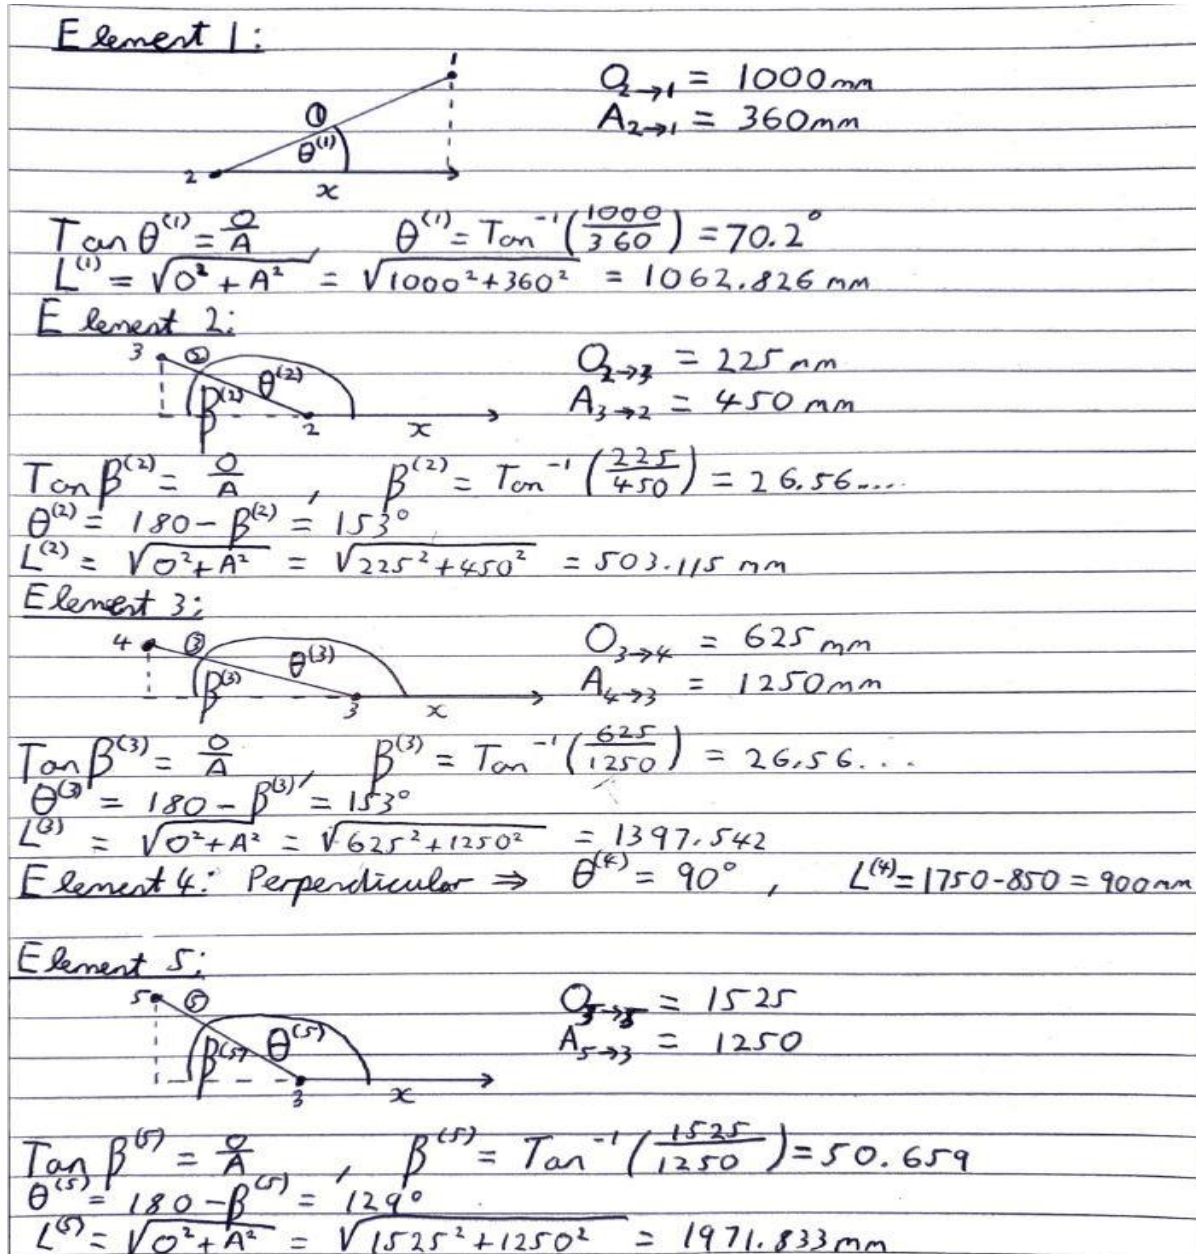 Element 1:
1
O2→1 = 1000mm
A2→1 = 360mm
①
θ(1)
2
x
Tan θ(1) = O/A , θ(1) = Tan⁻¹(1000/360) = 70.2°
L(1) = √O²+A² = √1000²+360² = 1062.826 mm
Element 2:
3 ②
θ(2)
β(2)
2 x
O2→3 = 225mm
A3→2 = 450mm
Tan β(2) = O/A , β(2) = Tan⁻¹(225/450) = 26.56....
θ(2) = 180 - β(2) = 153°
L(2) = √O²+A² = √225²+450² = 503.115 mm
Element 3:
4 ③
θ(3)
β(3)
3 x
O3→4 = 625mm
A4→3 = 1250mm
Tan β(3) = O/A , β(3) = Tan⁻¹(625/1250) = 26.56...
θ(3) = 180 - β(3) = 153°
L(3) = √O²+A² = √625²+1250² = 1397.542
Element 4: Perpendicular ⇒ θ(4) = 90° , L(4) = 1750-850 = 900mm
Element 5:
5 ⑤
θ(5)
β(5)
3 x
O3→5 = 1525
A5→3 = 1250
Tan β(5) = O/A , β(5) = Tan⁻¹(1525/1250) = 50.659
θ(5) = 180 - β(5) = 129°
L(5) = √O²+A² = √1525²+1250² = 1971.833mm